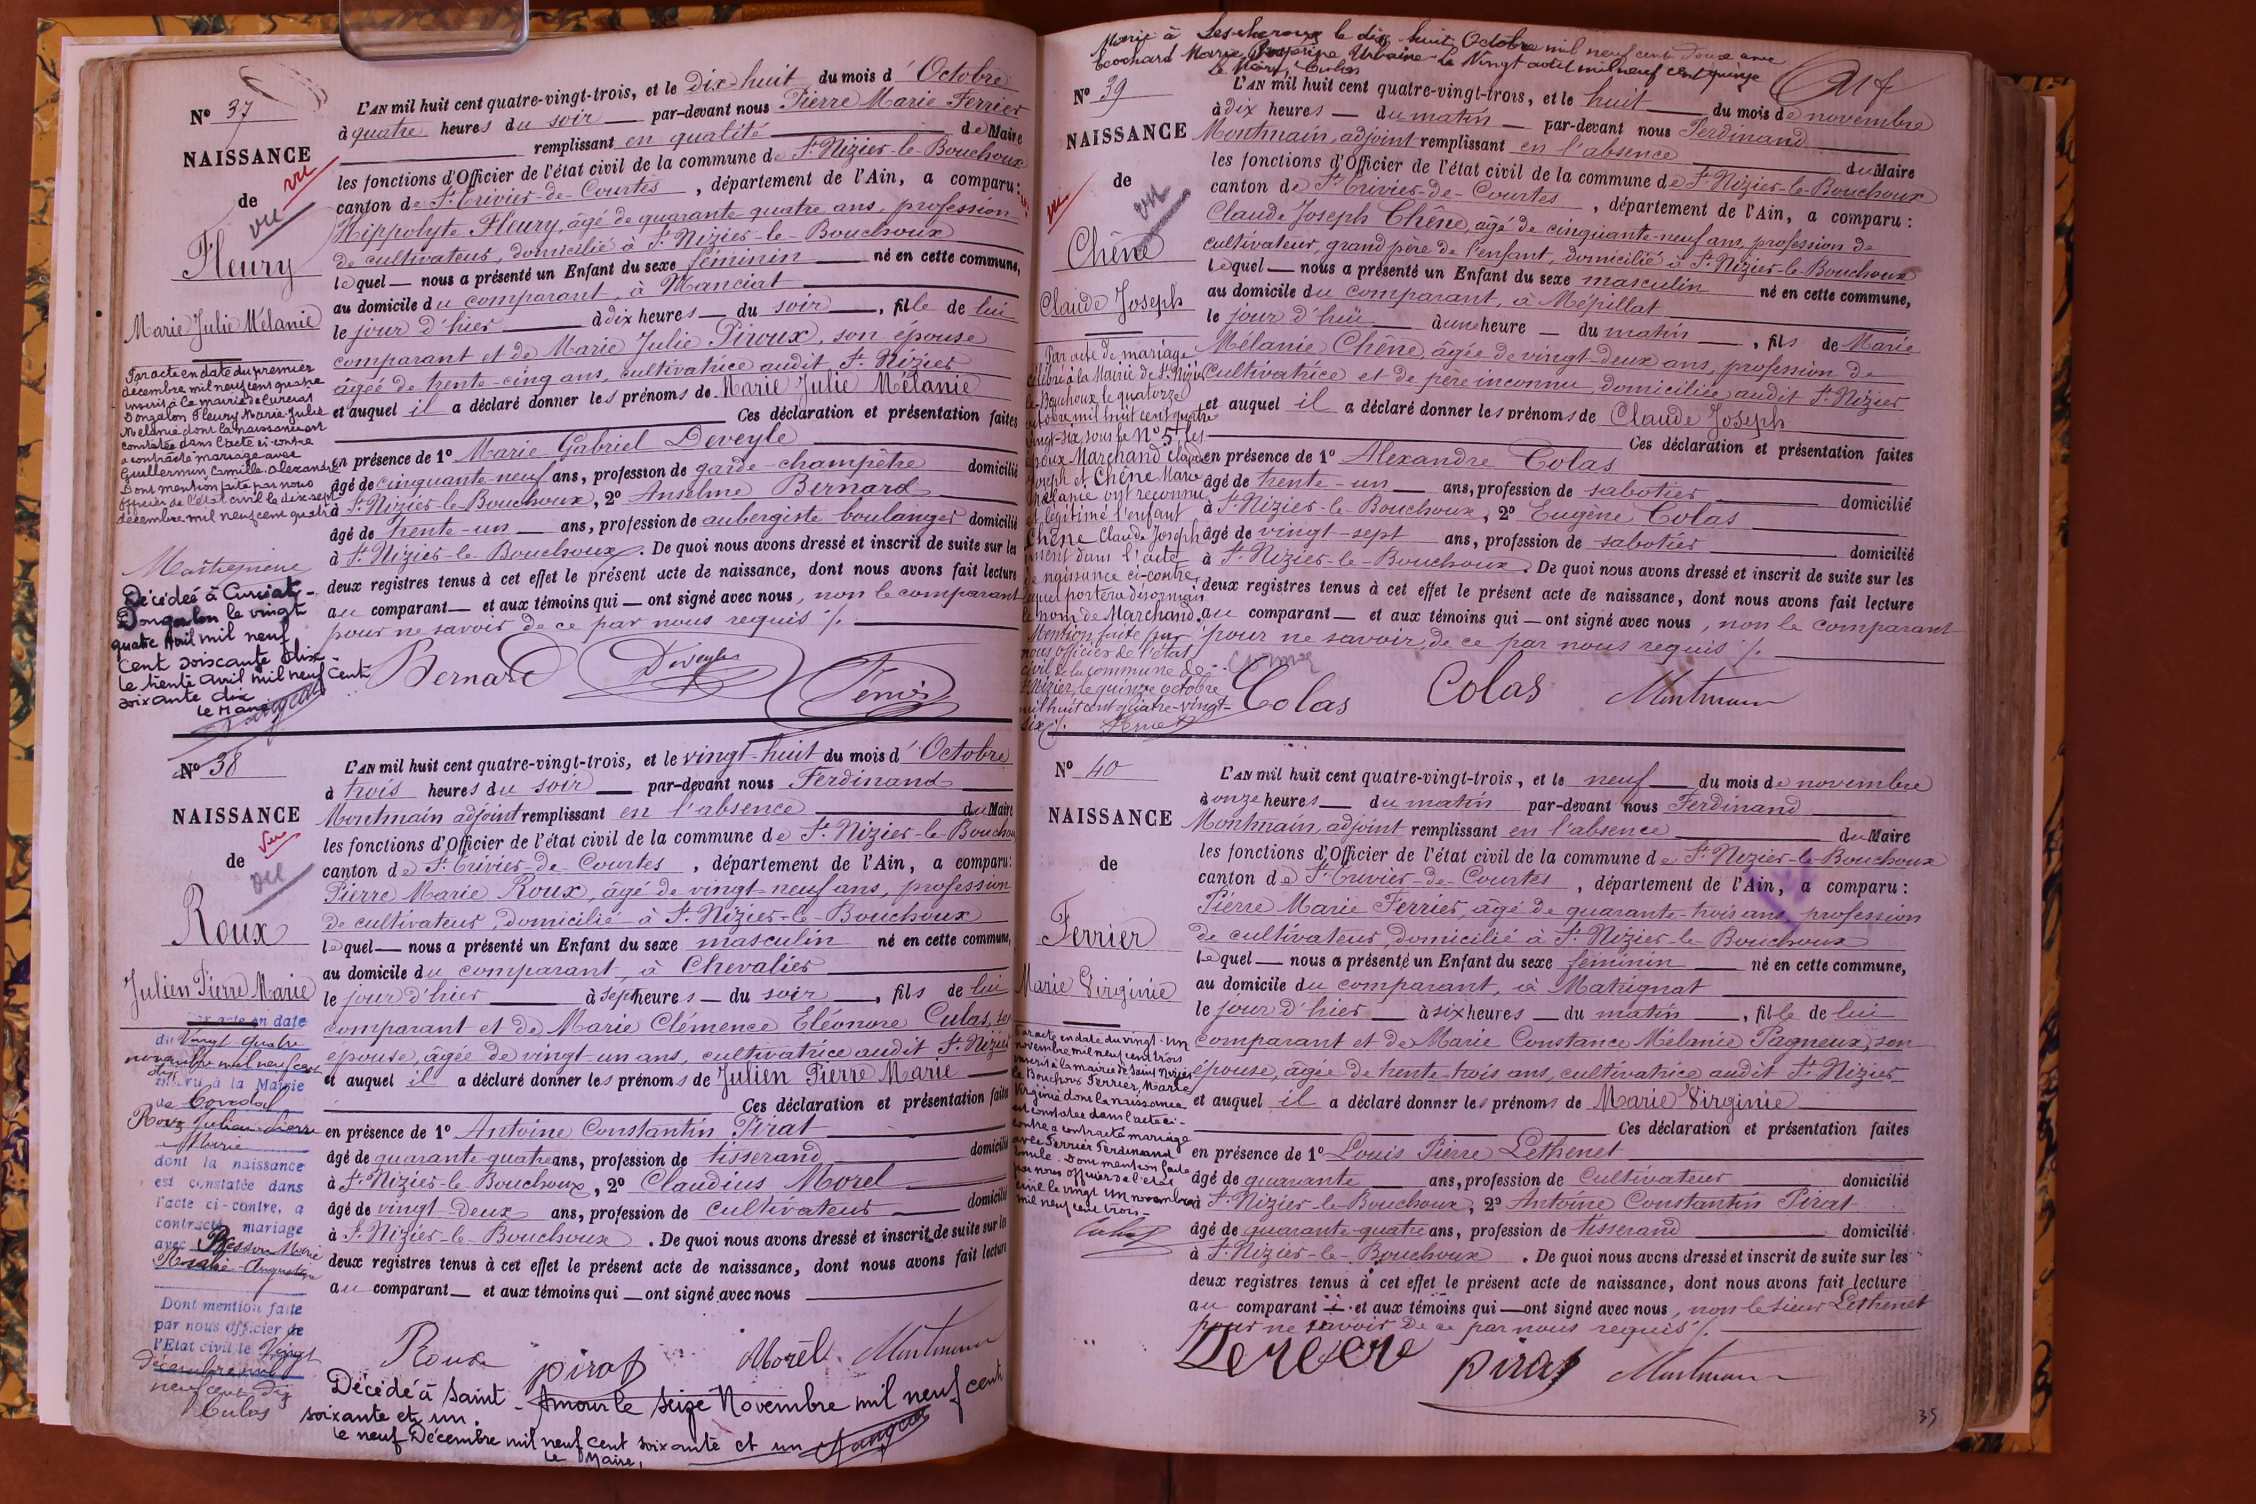 N° 37
NAISSANCE
de
vu
vu
Fleury
Marie Julie Mélanie
Par acte en date du premier
décembre mil neuf cent quatre
inscrit à la mairie de Curciat
Dongalon Fleury Marie Julie
Mélanie dont la naissance est
constatée dans l'acte ci-contre
a contracté mariage avec
Guillermin Camille Alexandre
Dont mention faite par nous
officier de l'état civil le dix sept
décembre mil neuf cent quatre
Décédée à Curciat-
Dongalon le vingt
quatre Avril mil neuf
cent soixante dix -
le trente avril mil neuf cent
soixante dix
le Maire
L'AN mil huit cent quatre-vingt-trois, et le dix huit du mois d'Octobre
à quatre heures du soir par-devant nous Pierre Marie Ferrier
remplissant en qualité de Maire
les fonctions d'Officier de l'état civil de la commune de St Nizier-le-Bouchoux
canton de St Trivier-de-Courtes, département de l'Ain, a comparu:
Hippolyte Fleury, âgé de quarante quatre ans, profession
de cultivateur, domicilié à St Nizier-le-Bouchoux
lequel nous a présenté un Enfant du sexe féminin né en cette commune,
au domicile du comparant, à Manciat
le jour d'hier à dix heures du soir, fille de lui
comparant et de Marie Julie Piroux, son épouse
âgée de trente-cinq ans, cultivatrice audit St Nizier
et auquel il a déclaré donner les prénoms de Marie Julie Mélanie
Ces déclaration et présentation faites
en présence de 1° Marie Gabriel Deveyle
âgé de cinquante-neuf ans, profession de garde-champêtre domicilié
à St Nizier-le-Bouchoux, 2° Anselme Bernard
âgé de trente-un ans, profession de aubergiste boulanger domicilié
à St Nizier-le-Bouchoux. De quoi nous avons dressé et inscrit de suite sur les
deux registres tenus à cet effet le présent acte de naissance, dont nous avons fait lecture
au comparant et aux témoins qui ont signé avec nous, non le comparant
pour ne savoir de ce par nous requis ./.
Bernard Deveyle Ferrier
N° 38
NAISSANCE
de
Vu
vu
Roux
Julien Pierre Marie
Par acte en date
du Vingt quatre
novembre mil neuf cent
dix
inscrit à la Mairie
de
Roux Julien Pierre
Marie
dont la naissance
est constatée dans
l'acte ci-contre, a
contracté mariage
avec Besson Marie
Rosalie Augustine
Dont mention faite
par nous officier de
l'Etat civil le Vingt
Décembre mil
neuf cent dix
Culas
L'AN mil huit cent quatre-vingt-trois, et le vingt-huit du mois d'Octobre
à trois heures du soir par-devant nous Ferdinand
Montmain adjoint remplissant en l'absence du Maire
les fonctions d'Officier de l'état civil de la commune de St Nizier-le-Bouchou
canton de St Trivier-de-Courtes, département de l'Ain, a comparu:
Pierre Marie Roux, âgé de vingt-neuf ans, profession
de cultivateur, domicilié à St Nizier-le-Bouchoux
lequel nous a présenté un Enfant du sexe masculin né en cette commune,
au domicile du comparant, à Chevalier
le jour d'hier à sept heures du soir, fils de lui
comparant et de Marie Clémence Eléonore Culas, son
épouse, âgée de vingt-un ans, cultivatrice audit St Nizier
et auquel il a déclaré donner les prénoms de Julien Pierre Marie
Ces déclaration et présentation faites
en présence de 1° Antoine Constantin Pirat
âgé de quarante-quatre ans, profession de tisserand domicilié
à St Nizier-le-Bouchoux, 2° Claudius Morel
âgé de vingt-deux ans, profession de cultivateur domicilié
à St Nizier-le-Bouchoux. De quoi nous avons dressé et inscrit de suite sur la
deux registres tenus à cet effet le présent acte de naissance, dont nous avons fait lecture
au comparant et aux témoins qui ont signé avec nous
Roux pirat Morel Montmain
Décédé à Saint-Amour le seize Novembre mil neuf cent
soixante et un.
le neuf Décembre mil neuf cent soixante et un
le Maire,
Marié à Lescheroux le dix huit Octobre mil neuf cent douze avec
Cochard Marie Josephine Urbaine le Vingt août mil neuf cent quinze
le Maire, Culas
N° 39
NAISSANCE
de
vu
vu
Chêne
Claude Joseph
Par acte de mariage
célébré à la Mairie de St Nizier
le-Bouchoux le quatorze
octobre mil huit cent quatre
vingt-six sous le N° 5 les
époux Marchand Claude
Joseph et Chêne Marie
Mélanie ont reconnu
et légitimé l'enfant
Chêne Claude Joseph
dénommé dans l'acte
de naissance ci-contre
lequel portera désormais
le nom de Marchand.
Mention faite par
nous officier de l'état
civil de la commune de
St Nizier, le quinze octobre
mil huit cent quatre-vingt-
six ./.
L'AN mil huit cent quatre-vingt-trois, et le huit du mois de novembre
à dix heures du matin par-devant nous Ferdinand
Montmain, adjoint remplissant en l'absence du Maire
les fonctions d'Officier de l'état civil de la commune de St Nizier-le-Bouchoux
canton de St Trivier-de-Courtes, département de l'Ain, a comparu:
Claude Joseph Chêne, âgé de cinquante-neuf ans, profession de
cultivateur, grand père de l'enfant, domicilié à St Nizier-le-Bouchoux
lequel nous a présenté un Enfant du sexe masculin né en cette commune,
au domicile du comparant, à Mépillat
le jour d'hui à une heure du matin, fils de Marie
Mélanie Chêne, âgée de vingt-deux ans, profession de
Cultivatrice et de père inconnu, domiciliée audit St Nizier
et auquel il a déclaré donner les prénoms de Claude Joseph
Ces déclaration et présentation faites
en présence de 1° Alexandre Colas
âgé de trente-un ans, profession de sabotier domicilié
à St Nizier-le-Bouchoux, 2° Eugène Colas
âgé de vingt-sept ans, profession de sabotier domicilié
à St Nizier-le-Bouchoux. De quoi nous avons dressé et inscrit de suite sur les
deux registres tenus à cet effet le présent acte de naissance, dont nous avons fait lecture
au comparant et aux témoins qui ont signé avec nous, non le comparant
pour ne savoir, de ce par nous requis ./.
Colas Colas Montmain
N° 40
NAISSANCE
de
Ferrier
Marie Virginie
Par acte en date du vingt-un
novembre mil neuf cent trois
inscrit à la mairie de Saint Nizier
le Bouchoux Ferrier, Marie
Virginie dont la naissance
est constatée dans l'acte ci-
contre a contracté mariage
avec Ferrier Ferdinand
Emile. Dont mention faite
par nous officier de l'état
civil le vingt un novembre
mil neuf cent trois -
Culas
L'AN mil huit cent quatre-vingt-trois, et le neuf du mois de novembre
à onze heures du matin par-devant nous Ferdinand
Montmain, adjoint remplissant en l'absence du Maire
les fonctions d'Officier de l'état civil de la commune de St Nizier-le-Bouchoux
canton de St Trivier-de-Courtes, département de l'Ain, a comparu:
Pierre Marie Ferrier, âgé de quarante-trois ans, profession
de cultivateur, domicilié à St Nizier-le-Bouchoux
lequel nous a présenté un Enfant du sexe féminin né en cette commune,
au domicile du comparant, à Matrignat
le jour d'hier à six heures du matin, fille de lui
comparant et de Marie Constance Mélanie Pagneux, son
épouse, âgée de trente-trois ans, cultivatrice audit St Nizier
et auquel il a déclaré donner les prénoms de Marie Virginie
Ces déclaration et présentation faites
en présence de 1° Louis Pierre Lethenet
âgé de quarante ans, profession de Cultivateur domicilié
à St Nizier-le-Bouchoux, 2° Antoine Constantin Pirat
âgé de quarante-quatre ans, profession de tisserand domicilié
à St Nizier-le-Bouchoux. De quoi nous avons dressé et inscrit de suite sur les
deux registres tenus à cet effet le présent acte de naissance, dont nous avons fait lecture
au comparant et aux témoins qui ont signé avec nous, non le sieur Lethenet
pour ne savoir de ce par nous requis ./.
pirat Montmain
35